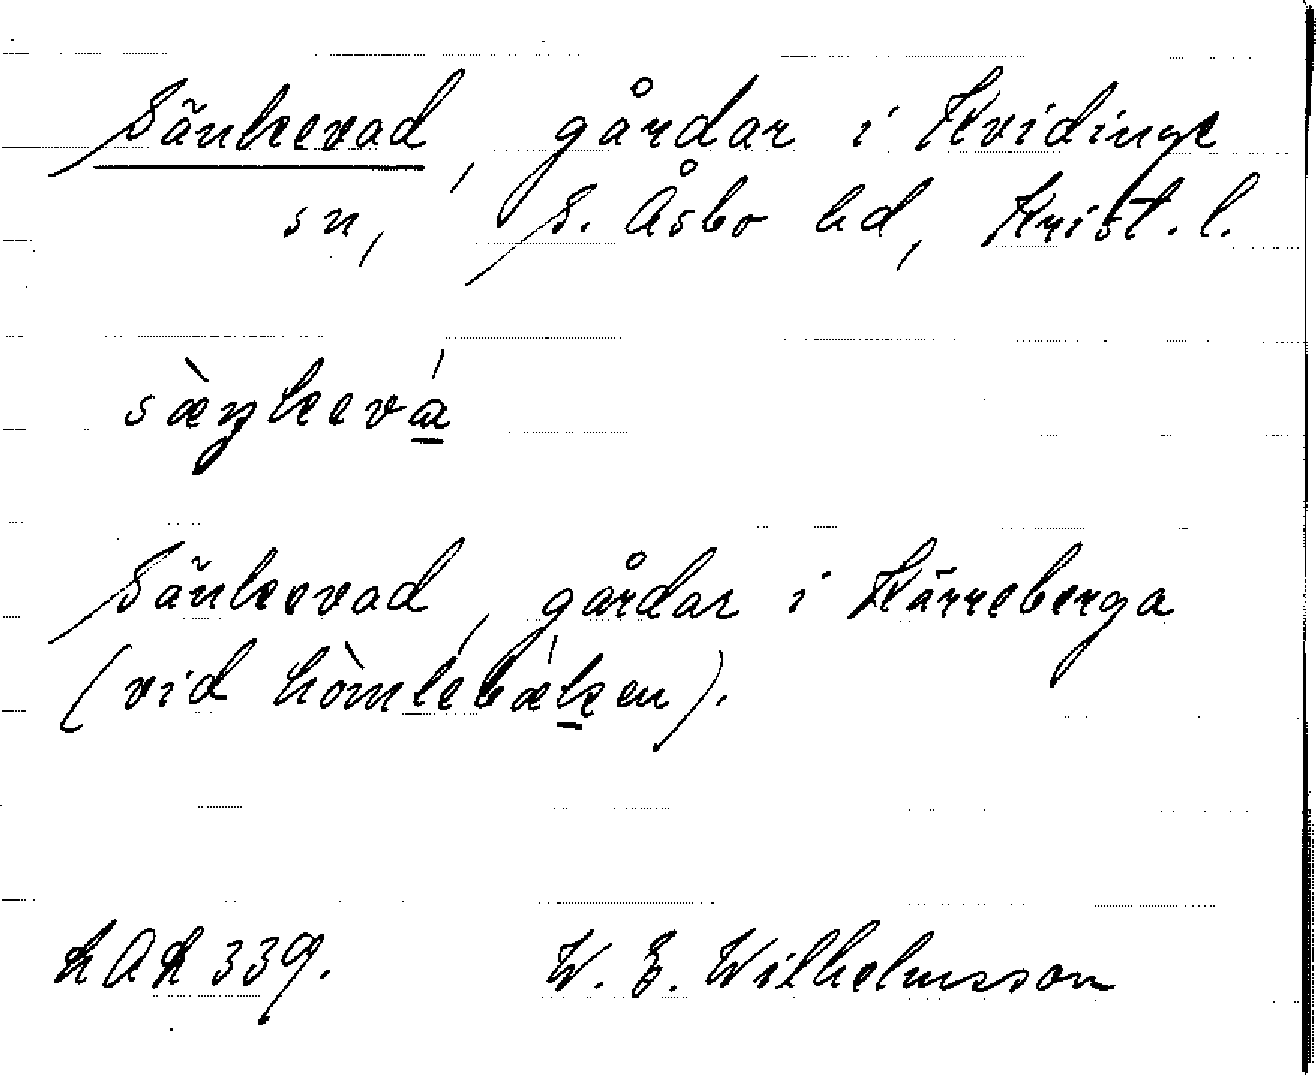 Sänkevad, gårdar i Kvidinge
sn, S. Åsbo hd, Krist. l.
sæ̀ŋkevá
Sänkevad, gårdar i Kärreberga
(vid hòmlebǽken).
LAL 339. W. E. Wilhelmsson